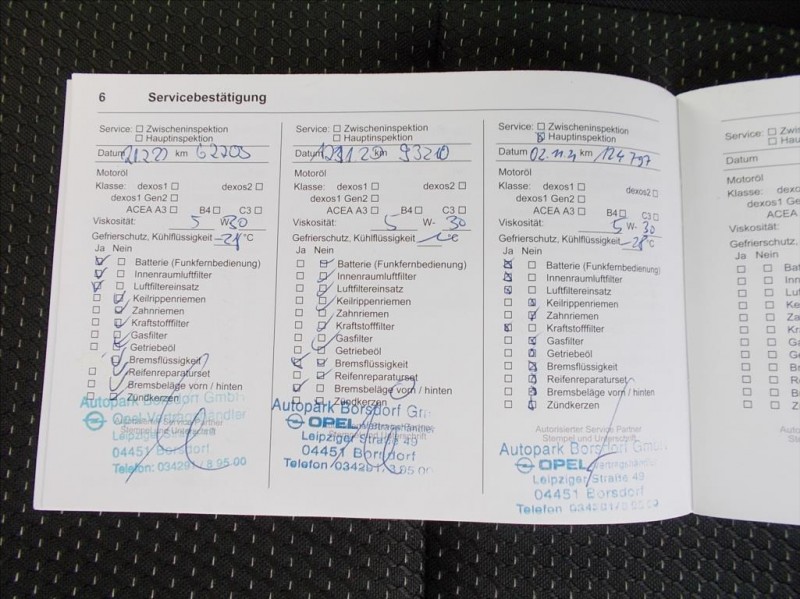 6 Servicebestätigung
Service: Zwischeninspektion
Hauptinspektion
Datum km 62205
Motoröl
Klasse: dexos1 dexos2
dexos1 Gen2
ACEA A3 B4 C3
Viskosität: 5 W30
Gefrierschutz, Kühlflüssigkeit -28 °C
Ja Nein
Batterie (Funkfernbedienung)
Innenraumluftfilter
Luftfiltereinsatz
Keilrippenriemen
Zahnriemen
Kraftstofffilter
Gasfilter
Getriebeöl
Bremsflüssigkeit
Reifenreparaturset
Bremsbeläge vorn / hinten
Zündkerzen
Autopark Borsdorf GmbH
Opel Vertragshändler
Autorisierter Service Partner
Stempel und Unterschrift
Leipziger Straße 49
04451 Borsdorf
Telefon: 034291 / 8 95 00
Service: Zwischeninspektion
Hauptinspektion
Datum km 93210
Motoröl
Klasse: dexos1 dexos2
dexos1 Gen2
ACEA A3 B4 C3
Viskosität: 5 W- 30
Gefrierschutz, Kühlflüssigkeit
Ja Nein
Batterie (Funkfernbedienung)
Innenraumluftfilter
Luftfiltereinsatz
Keilrippenriemen
Zahnriemen
Kraftstofffilter
Gasfilter
Getriebeöl
Bremsflüssigkeit
Reifenreparaturset
Bremsbeläge vorn / hinten
Zündkerzen
Autopark Borsdorf Gm
OPEL
Leipziger Straße 49
04451 Borsdorf
Telefon 034291/8 95 00
Service: Zwischeninspektion
Hauptinspektion
Datum 02.11.21 km 124797
Motoröl
Klasse: dexos1 dexos2
dexos1 Gen2
ACEA A3 B4 C3
Viskosität: 5 W- 30
Gefrierschutz, Kühlflüssigkeit -28 °C
Ja Nein
Batterie (Funkfernbedienung)
Innenraumluftfilter
Luftfiltereinsatz
Keilrippenriemen
Zahnriemen
Kraftstofffilter
Gasfilter
Getriebeöl
Bremsflüssigkeit
Reifenreparaturset
Bremsbeläge vorn / hinten
Zündkerzen
Autorisierter Service Partner
Stempel und Unterschrift
Autopark Borsdorf GmbH
OPEL Vertragshändler
Leipziger Straße 49
04451 Borsdorf
Telefon 034291/8 95 00
Service: Zwisc
Haup
Datum
Motoröl
Klasse: dexos1
dexos1 Gen2
ACEA A
Viskosität:
Gefrierschutz, K
Ja Nein
Batte
Inn
Luf
Ke
Za
Kr
G
G
B
R
B
Z
Auto
St